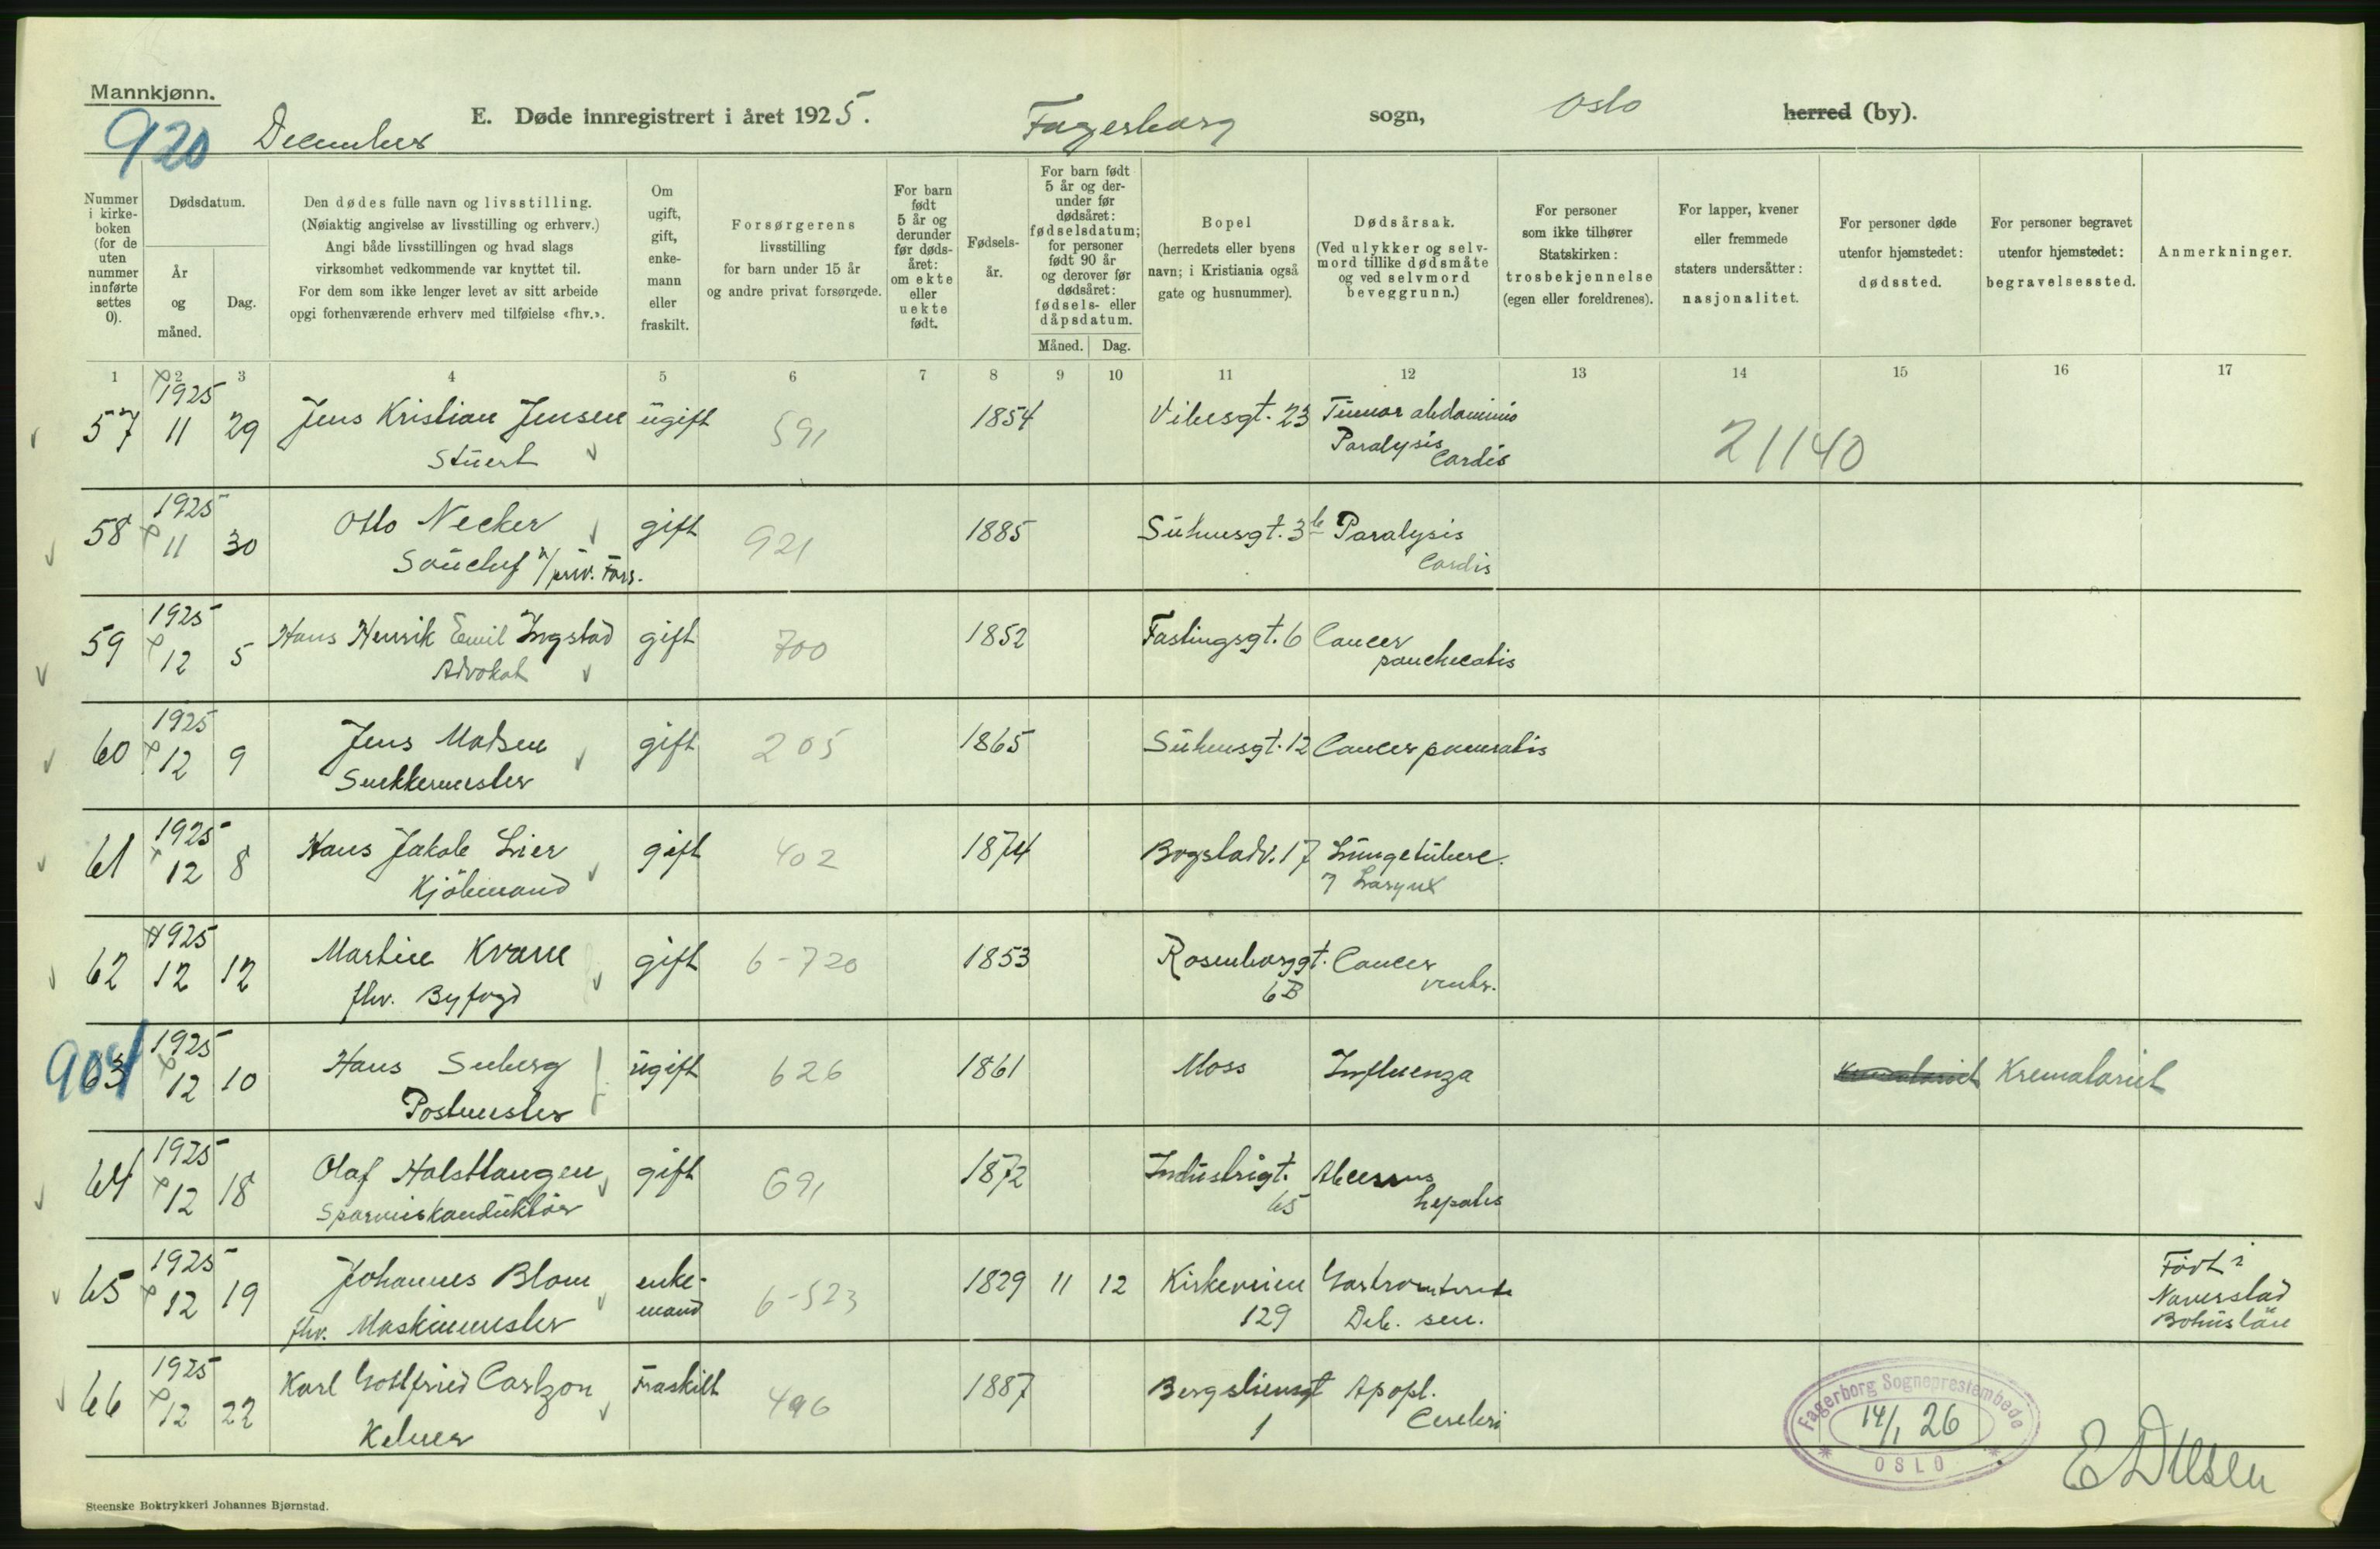 Mannkjønn.
920
December
E. Døde innregistrert i året 1925.
Fagerborg sogn, Oslo herred (by).
Nummer i kirke-boken (for de uten nummer innførte settes 0).
Dødsdatum.
År og måned.
Dag.
Den dødes fulle navn og livsstilling.
(Nøiaktig angivelse av livsstilling og erhverv.)
Angi både livsstillingen og hvad slags
virksomhet vedkommende var knyttet til.
For dem som ikke lenger levet av sitt arbeide
opgi forhenværende erhverv med tilføielse «fhv.».
Om ugift, gift, enke-mann eller fraskilt.
Forsørgerens
livsstilling
for barn under 15 år
og andre privat forsørgede.
For barn født 5 år og derunder før døds-året: om ekte eller uekte født.
Fødsels-år.
For barn født 5 år og der-under før dødsåret: fødselsdatum; for personer født 90 år og derover før dødsåret: fødsels- eller dåpsdatum.
Måned. Dag.
Bopel
(herredets eller byens
navn; i Kristiania også
gate og husnummer).
Dødsårsak.
(Ved ulykker og selv-
mord tillike dødsmåte
og ved selvmord
beveggrunn.)
For personer
som ikke tilhører
Statskirken:
trosbekjennelse
(egen eller foreldrenes).
For lapper, kvener
eller fremmede
staters undersåtter:
nasjonalitet.
For personer døde
utenfor hjemstedet:
dødssted.
For personer begravet
utenfor hjemstedet:
begravelsessted.
Anmerkninger.
1 2 3 4 5 6 7 8 9 10 11 12 13 14 15 16 17
57 1925 11 29 Jens Kristian Jensen ugift 591 1854 Vibesgt. 23 Tumor abdominis
Stuert Paralysis Cordis 21140
58 1925 11 30 Otto Necker gift 921 1885 Suhmsgt. 3b Paralysis
priv. Fors. Cordis
59 1925 12 5 Hans Henrik Emil Ingstad gift 700 1852 Fastingsgt. 6 Cancer
Advokat pancheatis
60 1925 12 9 Jens Madsen gift 205 1865 Suhmsgt. 12 Cancer pancratis
Snekkermester
61 1925 12 8 Hans Jakob Lier gift 402 1874 Bogstadv. 17 Lungetuberc.
Kjöbmand Larynx
62 1925 12 12 Martin Kvam gift 6-720 1853 Rosenborggt. Cancer
fhv. Byfogd 6B ventr.
904
63 1925 12 10 Hans Seeberg ugift 626 1861 Moss Influenza Krematoriet Krematoriet
Postmester
64 1925 12 18 Olaf Halstlangen gift 691 1872 Industrigt. Abcessus
Sporveiskonduktör 65 hepatis
65 1925 12 19 Johannes Blom enke- 6-523 1829 11 12 Kirkeveien Gastroenterit Födt i
fhv. Maskinmester mand 129 Deb. sen. Naverstad
Bohuslän
66 1925 12 22 Karl Gottfried Carlzon Fraskilt 496 1887 Bergsliensgt Apopl.
Kelner 1 Cerebri
Fagerborg Sogneprestembede
14/1 26
OSLO
Steenske Boktrykkeri Johannes Bjørnstad.